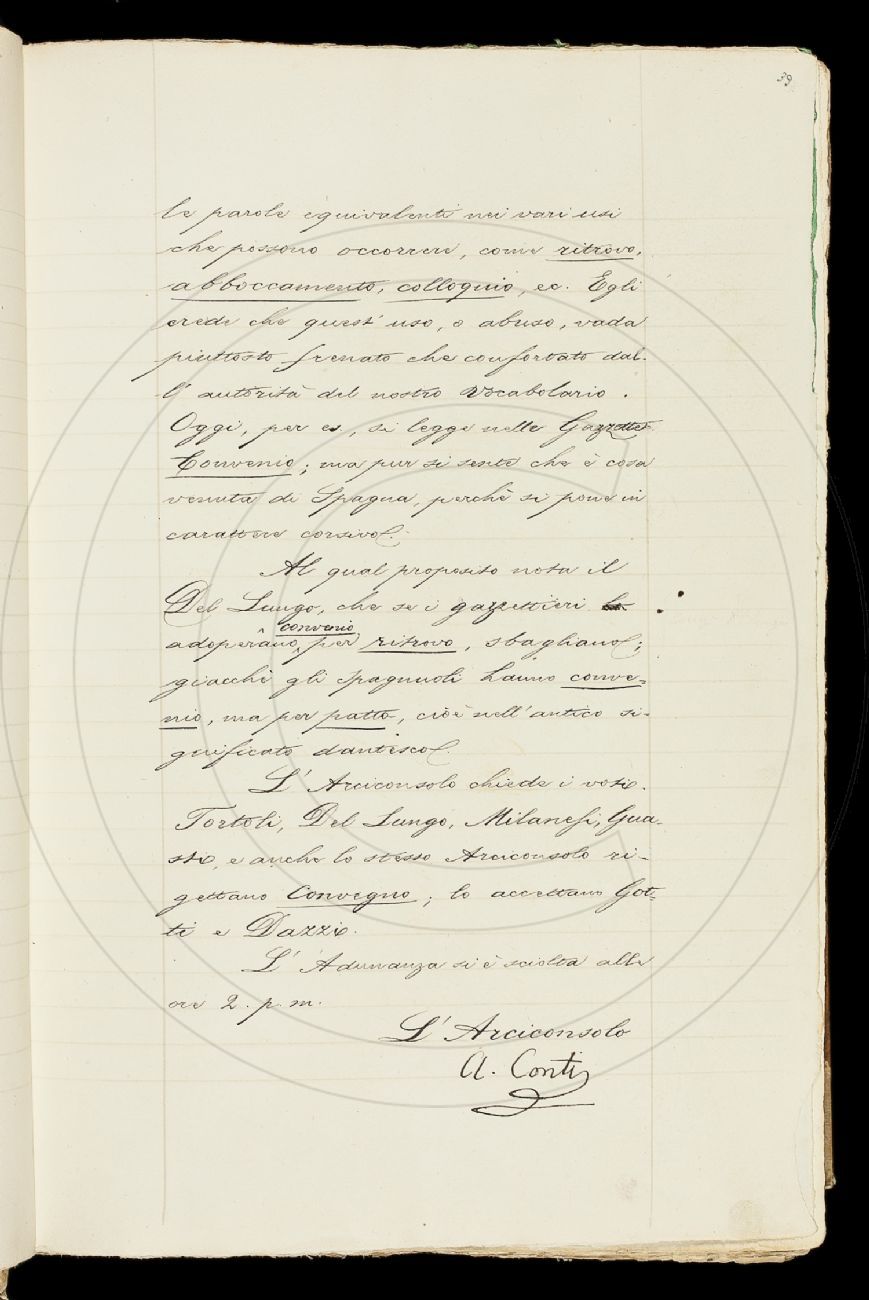 39
le parole equivalenti nei vari usi
che possono occorrere, come ritrovo,
abboccamento, colloquio, ec. Egli
crede che quest'uso, o abuso, vada
piuttosto frenato che confortato dal-
l'autorità del nostro Vocabolario.
Oggi, per es., si legge nelle Gazzette
Convenio; ma pur si sente che è cosa
venuta di Spagna, perchè si pone in
carattere corsivo.
Al qual proposito nota il
Del Lungo, che se i gazzettieri
convenio
adoperâno, per ritrovo, sbagliano;
giacchè gli Spagnuoli hanno conve-
nio, ma per patto, cioè nell'antico si-
gnificato dantesco.
L'Arciconsolo chiede i voti.
Tortoli, Del Lungo, Milanesi, Gua-
sti, e anche lo stesso Arciconsolo ri-
gettano Convegno; lo accettano Got-
ti e Dazzi.
L'Adunanza si è sciolta alle
ore 2. p. m.
L'Arciconsolo
A. Conti